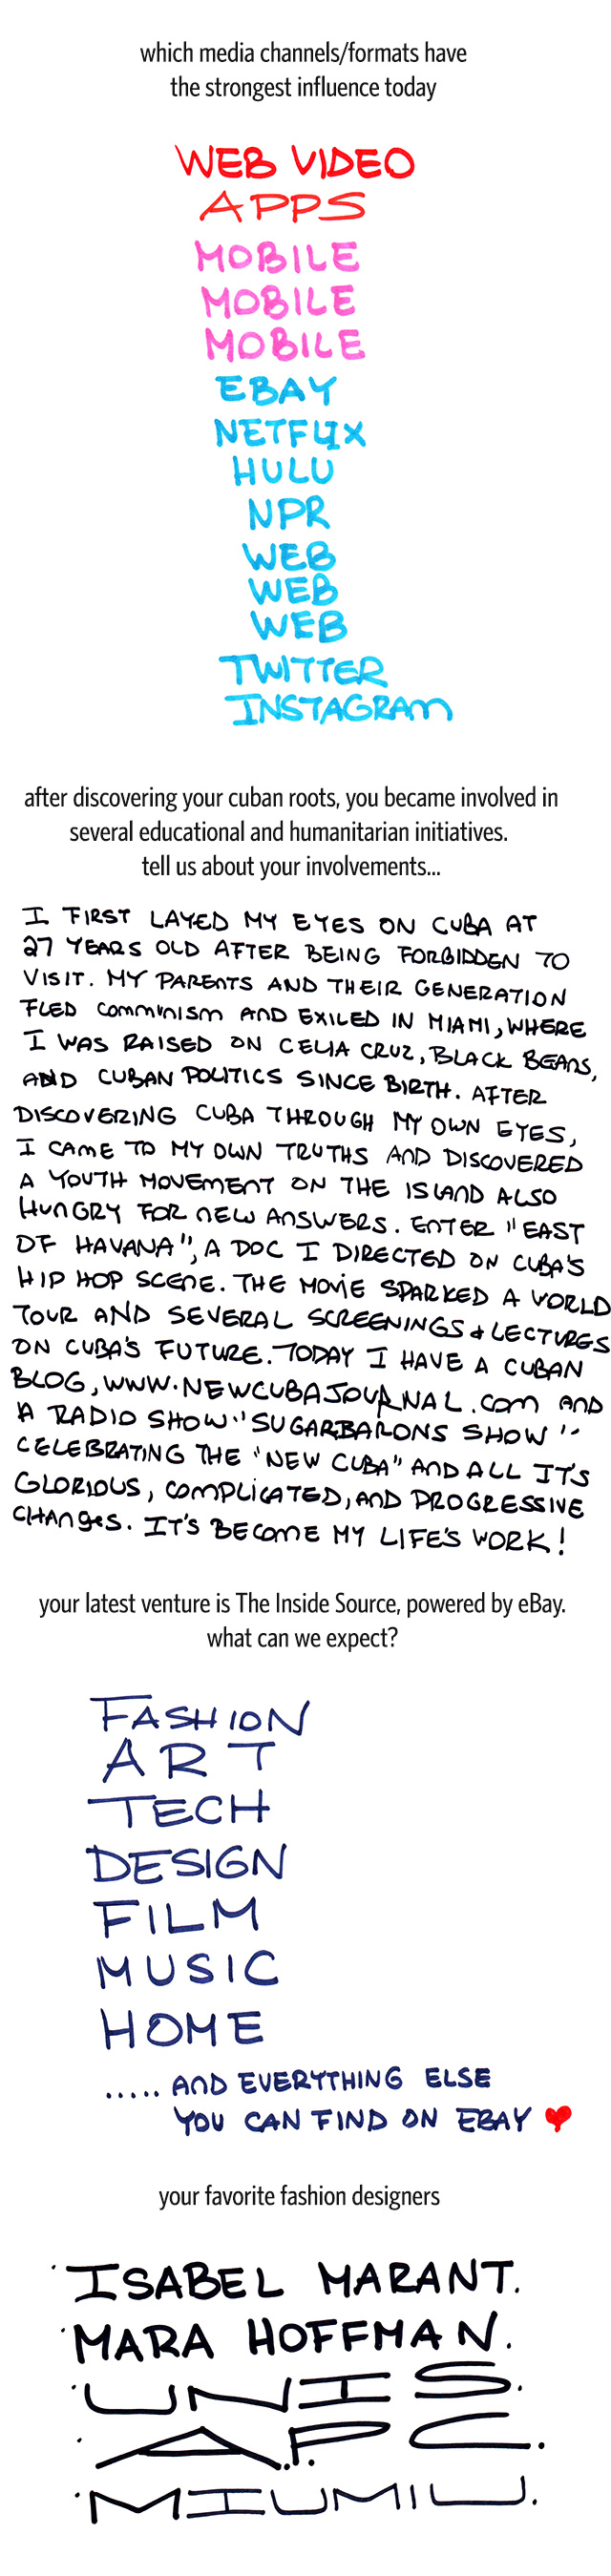 which media channels/formats have
the strongest influence today
WEB VIDEO
APPS
MOBILE
MOBILE
MOBILE
EBAY
NETFLIX
HULU
NPR
WEB
WEB
WEB
TWITTER
INSTAGRAM
after discovering your cuban roots, you became involved in
several educational and humanitarian initiatives.
tell us about your involvements...
I FIRST LAYED MY EYES ON CUBA AT
27 YEARS OLD AFTER BEING FORBIDDEN TO
VISIT. MY PARENTS AND THEIR GENERATION
FLED COMMUNISM AND EXILED IN MIAMI, WHERE
I WAS RAISED ON CELIA CRUZ, BLACK BEANS,
AND CUBAN POLITICS SINCE BIRTH. AFTER
DISCOVERING CUBA THROUGH MY OWN EYES,
I CAME TO MY OWN TRUTHS AND DISCOVERED
A YOUTH MOVEMENT ON THE ISLAND ALSO
HUNGRY FOR NEW ANSWERS. ENTER "EAST
OF HAVANA", A DOC I DIRECTED ON CUBA'S
HIP HOP SCENE. THE MOVIE SPARKED A WORLD
TOUR AND SEVERAL SCREENINGS & LECTURES
ON CUBA'S FUTURE. TODAY I HAVE A CUBAN
BLOG, WWW.NEWCUBAJOURNAL.COM AND
A RADIO SHOW "SUGARBARONS SHOW"
CELEBRATING THE "NEW CUBA" AND ALL IT'S
GLORIOUS, COMPLICATED, AND PROGRESSIVE
CHANGES. IT'S BECOME MY LIFE'S WORK!
your latest venture is The Inside Source, powered by eBay.
what can we expect?
FASHION
ART
TECH
DESIGN
FILM
MUSIC
HOME
..... AND EVERYTHING ELSE
YOU CAN FIND ON EBAY ♥
your favorite fashion designers
· ISABEL MARANT.
· MARA HOFFMAN.
· UNIS.
· A.P.C.
· MIUMIU.